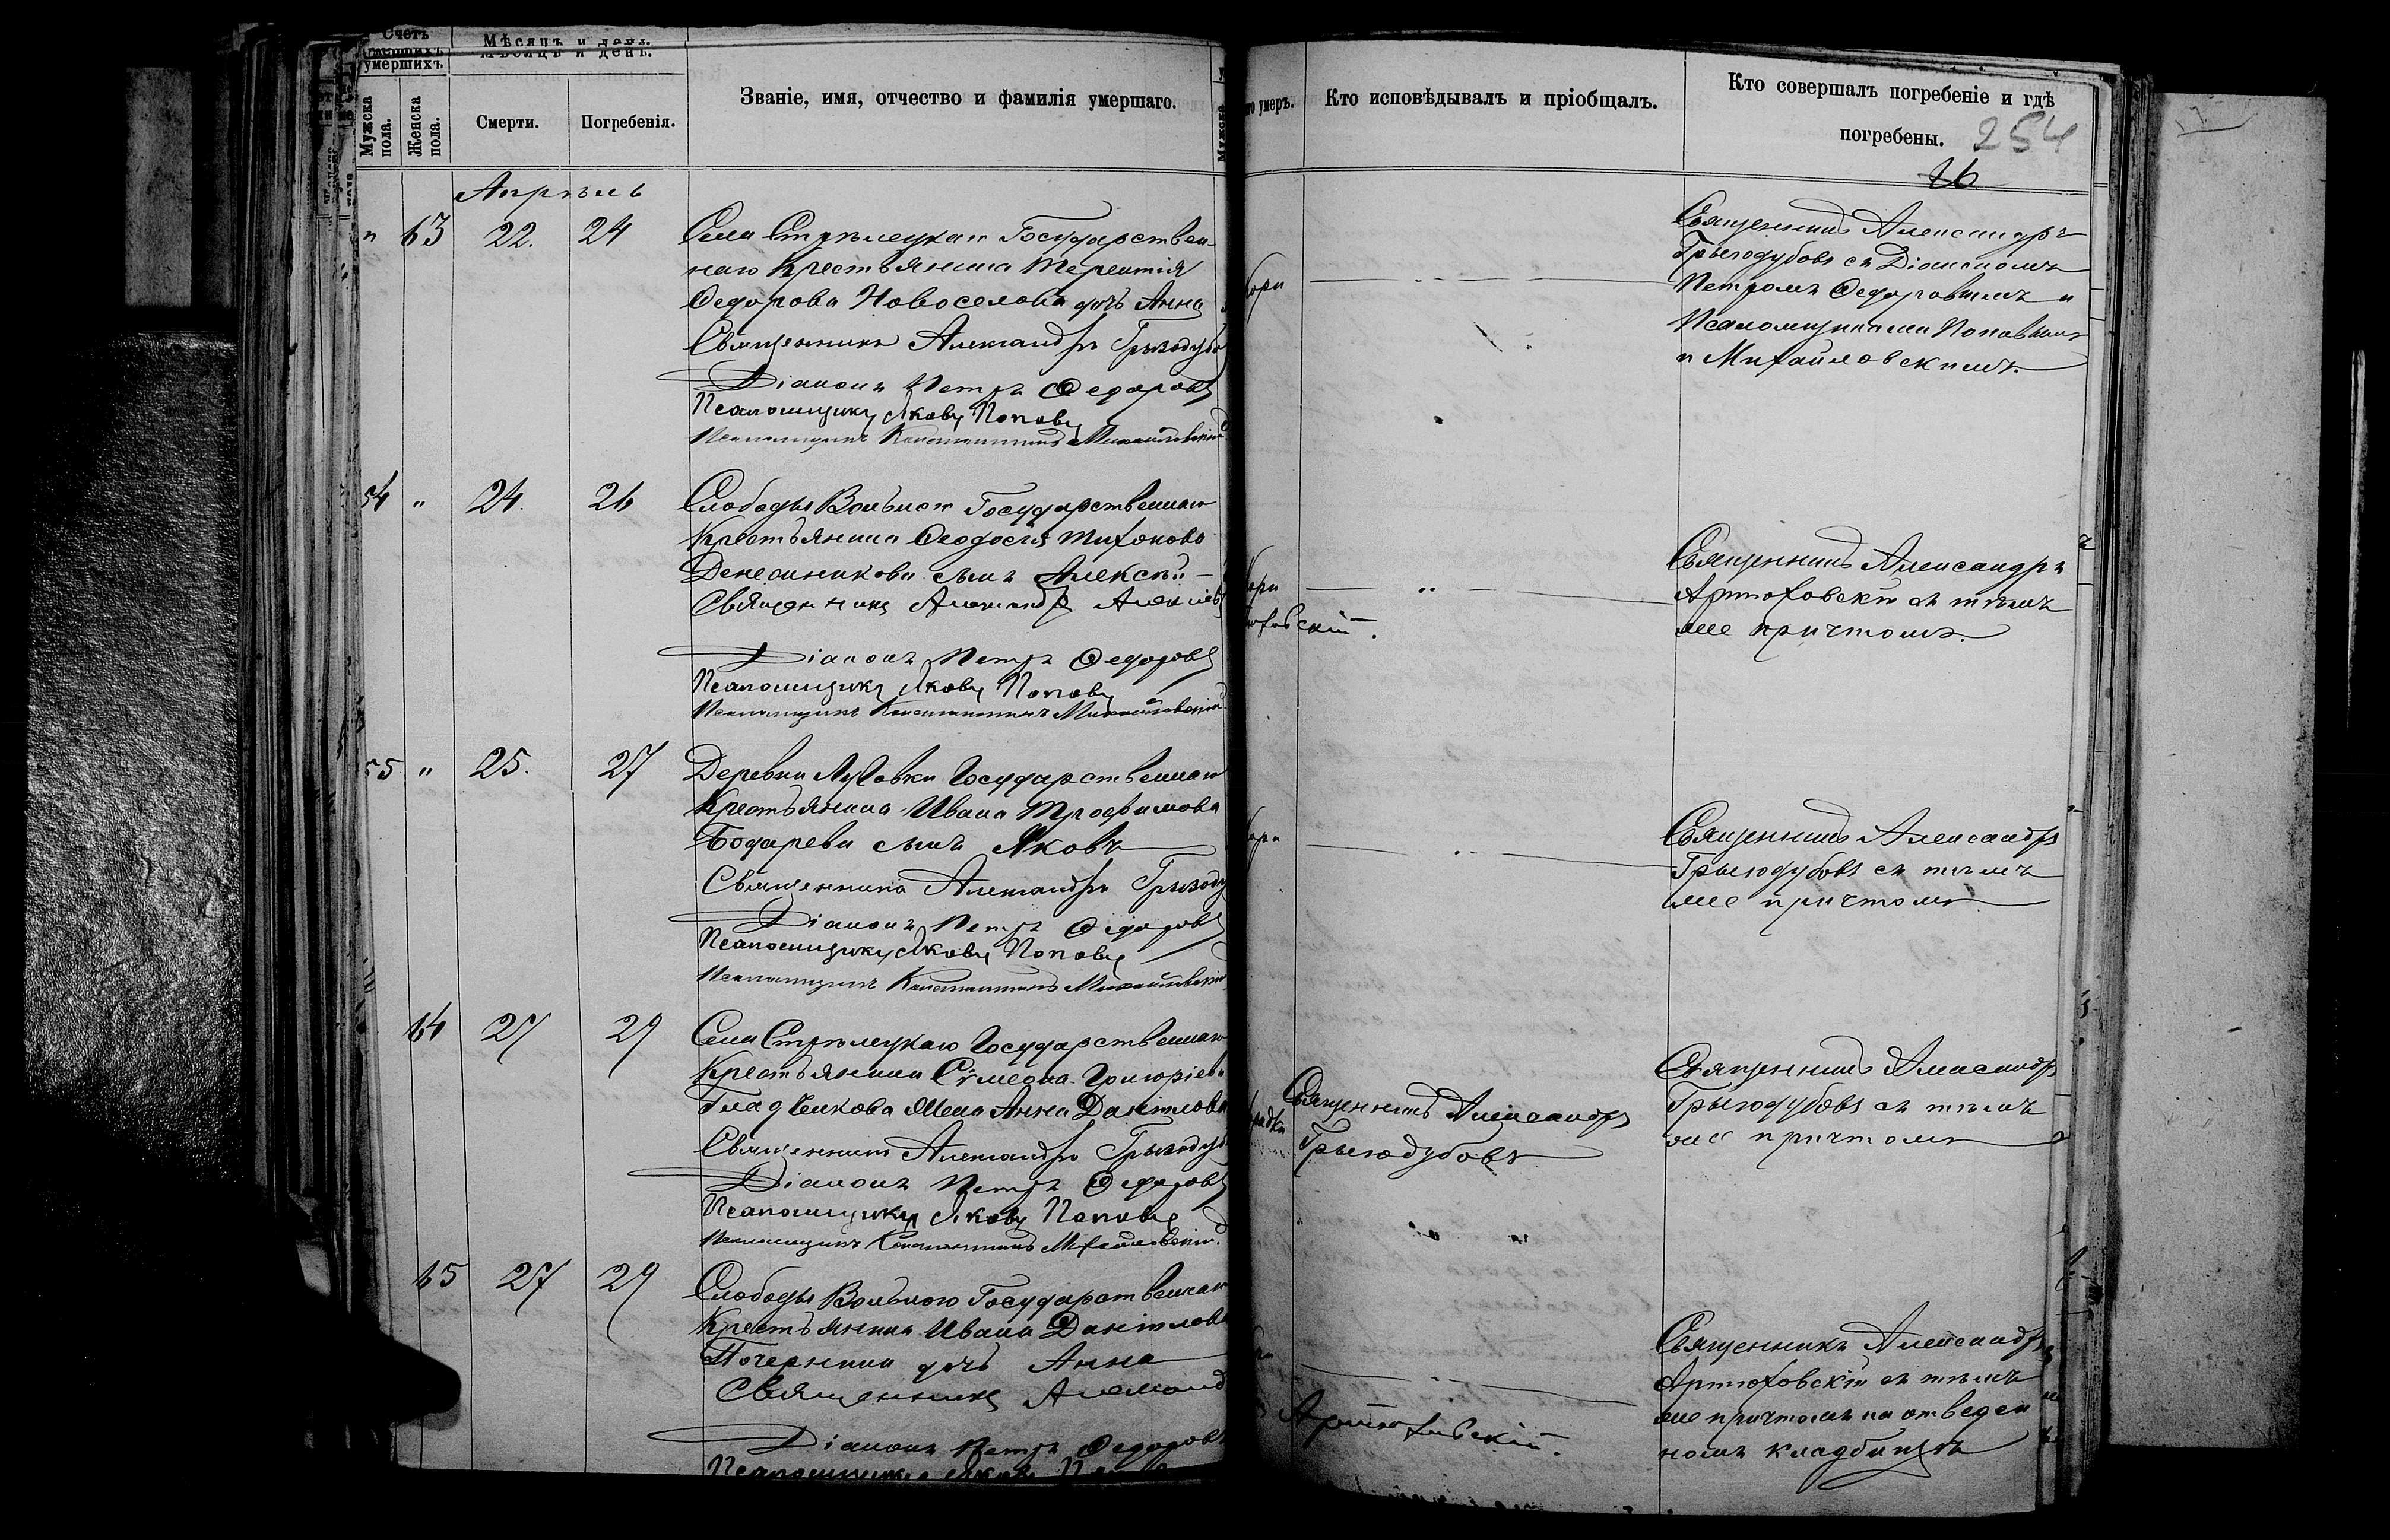 Счетъ умершихъ.
Мѣсяцъ и день.
Мужска пола.
Женска пола.
Смерти.
Погребенія.
Званіе, имя, отчество и фамилія умершаго.
Апрѣль
" 63 22. 24
Села Стрѣлецкаго Государствен-
наго Крестьянина Терентія
Ѳедорова Новоселова дочь Анна
Священникъ Александръ Грызодубо
Діаконъ Петръ Ѳедоровъ
Псаломщикъ Яковъ Поповъ
Псаломщикъ Константинъ Михайловскій
54 " 24. 26
Слободы Вольной Государственнаго
Крестьянина Ѳеодосія Тихонова
сынъ Алексѣй
Священникъ Александръ
Діаконъ Петръ Ѳедоровъ
Псаломщикъ Яковъ Поповъ
Псаломщикъ Константинъ Михайловскій
55 " 25. 27
Деревни Государственнаго
Крестьянина Ивана Трофимова
Бодарева сынъ Яковъ
Священникъ Александръ Грызоду
Діаконъ Петръ Ѳедоровъ
Псаломщикъ Яковъ Поповъ
Псаломщикъ Константинъ Михайловскій
64 27 29
Села Стрѣлецкаго Государственнаго
Крестьянина Сѵмеона Григоріева
Гладченкова жена Анна Даніилова
Священникъ Александръ Грызодуб
Діаконъ Петръ Ѳедоровъ
Псаломщикъ Яковъ Поповъ
Псаломщикъ Константинъ Михайловскій
65 27 29
Слободы Вольной Государственнаго
Крестьянина Ивана Даніилова
дочь Анна
Священникъ Александ
Діаконъ Петръ Ѳедоровъ
Псаломщикъ Яковъ
го умеръ.
Кто исповѣдывалъ и пріобщалъ.
Кто совершалъ погребеніе и гдѣ
погребены. 254
26
Священникъ Александръ
Грызодубовъ съ Діакономъ
Петромъ Ѳедоровымъ и
Псаломщиками Поповымъ
и Михайловскимъ.
кори
Священникъ Александръ
Артюховскій съ тѣмъ
же причтомъ.
кори
юховскій.
Священникъ Александръ
Грызодубовъ съ тѣмъ
же причтомъ
кори
Священникъ Александръ
Грызодубовъ
Священникъ Александръ
Грызодубовъ съ тѣмъ
же причтомъ
Артюховскій.
Священникъ Александръ
Артюховскій съ тѣмъ
же причтомъ на отведен
номъ кладбищѣ